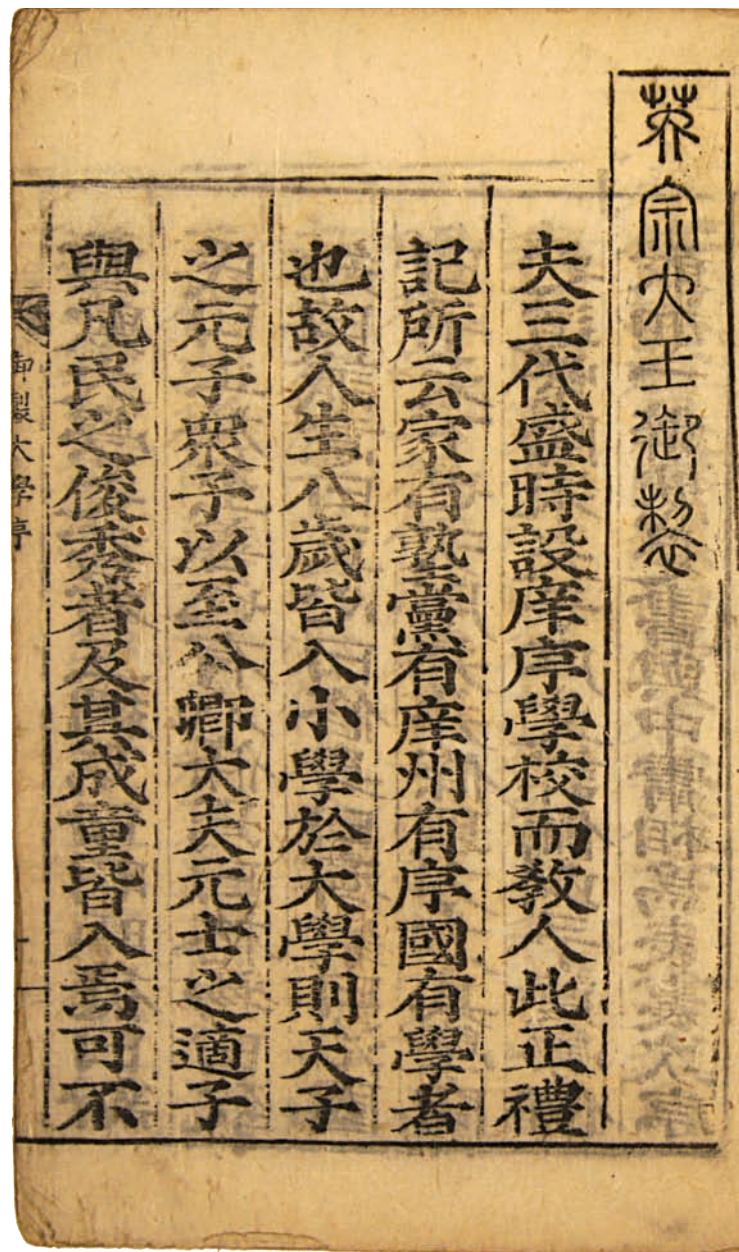 英宗大王御製
夫三代盛時設庠序學校而敎人此正禮
記所云家有塾黨有庠州有序國有學者
也故人生八歲皆入小學於大學則天子
之元子衆子以至公卿大夫元士之適子
與凡民之俊秀者及其成童皆入焉可不
御製大學序